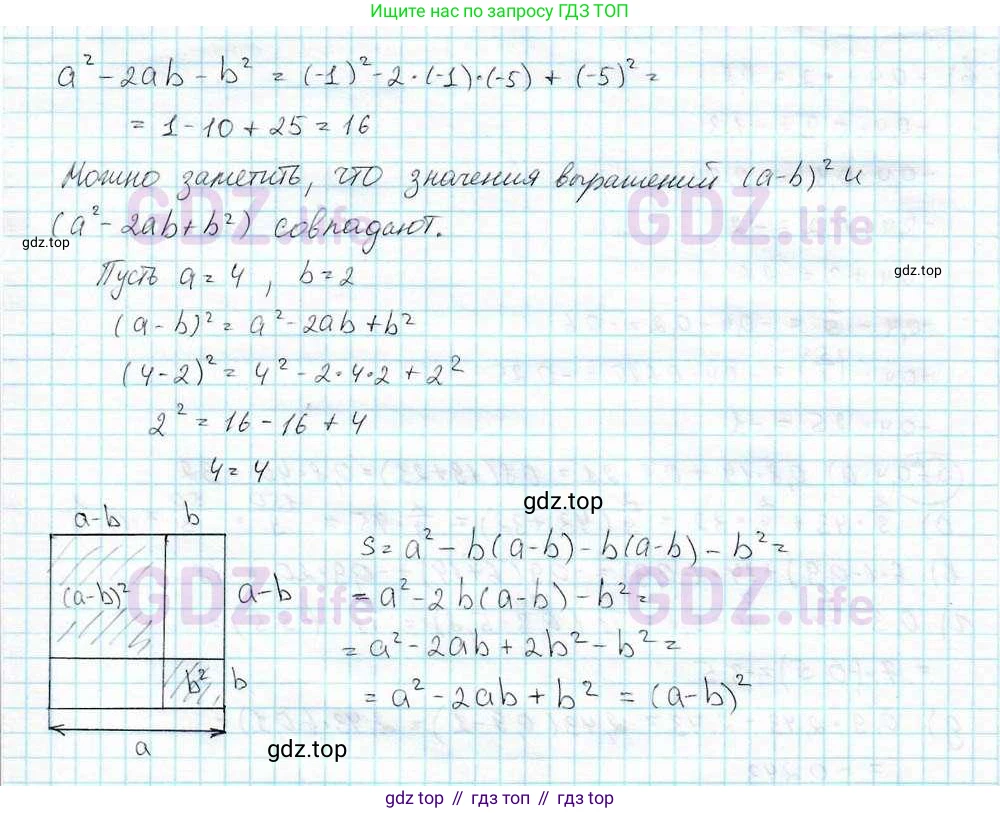 Ищите нас по запросу ГДЗ ТОП
a² - 2ab - b² = (-1)² - 2·(-1)·(-5) + (-5)² =
= 1 - 10 + 25 = 16
Можно заметить, что значения выражений (a-b)² и
(a² - 2ab + b²) совпадают.
gdz.top
GDZ.life
GDZ.life
gdz.top
Пусть a = 4, b = 2
(a - b)² = a² - 2ab + b²
(4 - 2)² = 4² - 2·4·2 + 2²
2² = 16 - 16 + 4
4 = 4
gdz.top
a-b b
(a-b)² a-b
b² b
a
S = a² - b(a-b) - b(a-b) - b² =
= a² - 2b(a-b) - b² =
= a² - 2ab + 2b² - b² =
= a² - 2ab + b² = (a-b)²
GDZ.life
GDZ.life
gdz.top
gdz top // гдз топ // gdz top